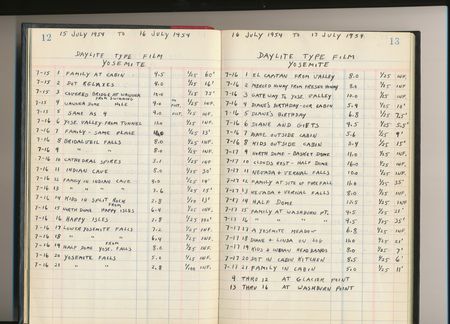 12 15 JULY 1954 TO 16 JULY 1954
DAYLITE TYPE FILM
YOSEMITE
7-15 1 FAMILY AT CABIN 4.5 1/25 60'
7-15 2 DOT RELAXES 4.0 1/25 16'
7-15 3 COVERED BRIDGE AT WAWONA 1/25 75'
7-15 4 WAWONA DOME 1/25 INF.
7-15 5 SAME AS 4 1/25 INF.
7-16 6 YOSE. VALLEY FROM TUNNEL 1/25 INF.
7-16 7 FAMILY - SAME PLACE 1/25 15'
7-16 8 BRIDALVEIL FALLS 8.0 1/25 INF.
7-16 9 " " 8.0 1/25 INF.
7-16 10 CATHEDRAL SPIRES 1/25 INF.
7-16 11 INDIAN CAVE 8.0 1/25 30'
7-16 12 FAMILY IN INDIAN CAVE 1/25
7-16 13 " " " 1/25 15'
7-16 14 KIDS IN SPLIT ROCK 2.8 13'
7-16 15 NORTH DOME FROM HAPPY ISLES 6.4 1/25 INF.
7-16 16 HAPPY ISLES 2.8 1/25
7-16 17 LOWER YOSEMITE FALLS 7.2 1/25 INF.
7-16 18 " " " 6.4 1/25 INF.
7-16 19 HALF DOME FROM YOSE. FALLS 8.0 1/25 INF.
7-16 20 YOSEMITE FALLS 5.0 1/25 INF.
7-16 21 " " 2.8 1/100 INF.
16 JULY 1954 TO 17 JULY 1954 13
DAYLITE TYPE FILM
YOSEMITE
7-16 1 EL CAPITAN FROM VALLEY 8.0 1/25 INF.
7-16 2 MERCED RIVER FROM MERCED RIVER 8.0 1/25 INF.
7-16 3 GATEWAY TO YOSE. VALLEY 1/25 INF.
7-16 4 DIANE'S BIRTHDAY - OUR CABIN 1/25
7-16 5 DIANE'S BIRTHDAY 6.8 1/25 7.5'
7-16 6 DIANE AND GIFTS 4.5 1/25 5.5'
7-16 7 OUTSIDE CABIN 5.6 1/25 9'
7-16 8 KIDS OUTSIDE CABIN 1/25 15'
7-17 9 NORTH DOME - BASKET DOME 1/25 INF.
7-17 10 CLOUDS REST - HALF DOME 1/25 INF.
7-17 11 NEVADA + VERNAL FALLS 1/25 INF.
7-17 12 FAMILY AT SITE OF FIRE FALL 1/25 35'
7-17 13 NEVADA + VERNAL FALLS 8.0 1/25 INF.
7-17 14 HALF DOME 1/25 INF.
7-17 15 FAMILY AT WASHBURN PT. 4.5 1/25 21'
7-17 16 " " " 4.5 1/25 35'
7-17 17 A YOSEMITE MEADOW 6.8 1/25 INF.
7-17 18 DIANE + LINDA ON LOG 1/25 21'
7-17 19 KIDS + INDIAN HEAD BANDS 8.0 1/25 7'
7-17 20 DOT IN CABIN KITCHEN 8.5 1/25 6'
7-17 21 FAMILY IN CABIN 5.0 1/25 11'
9 THRU 12 AT GLACIER POINT
13 THRU 16 AT WASHBURN POINT